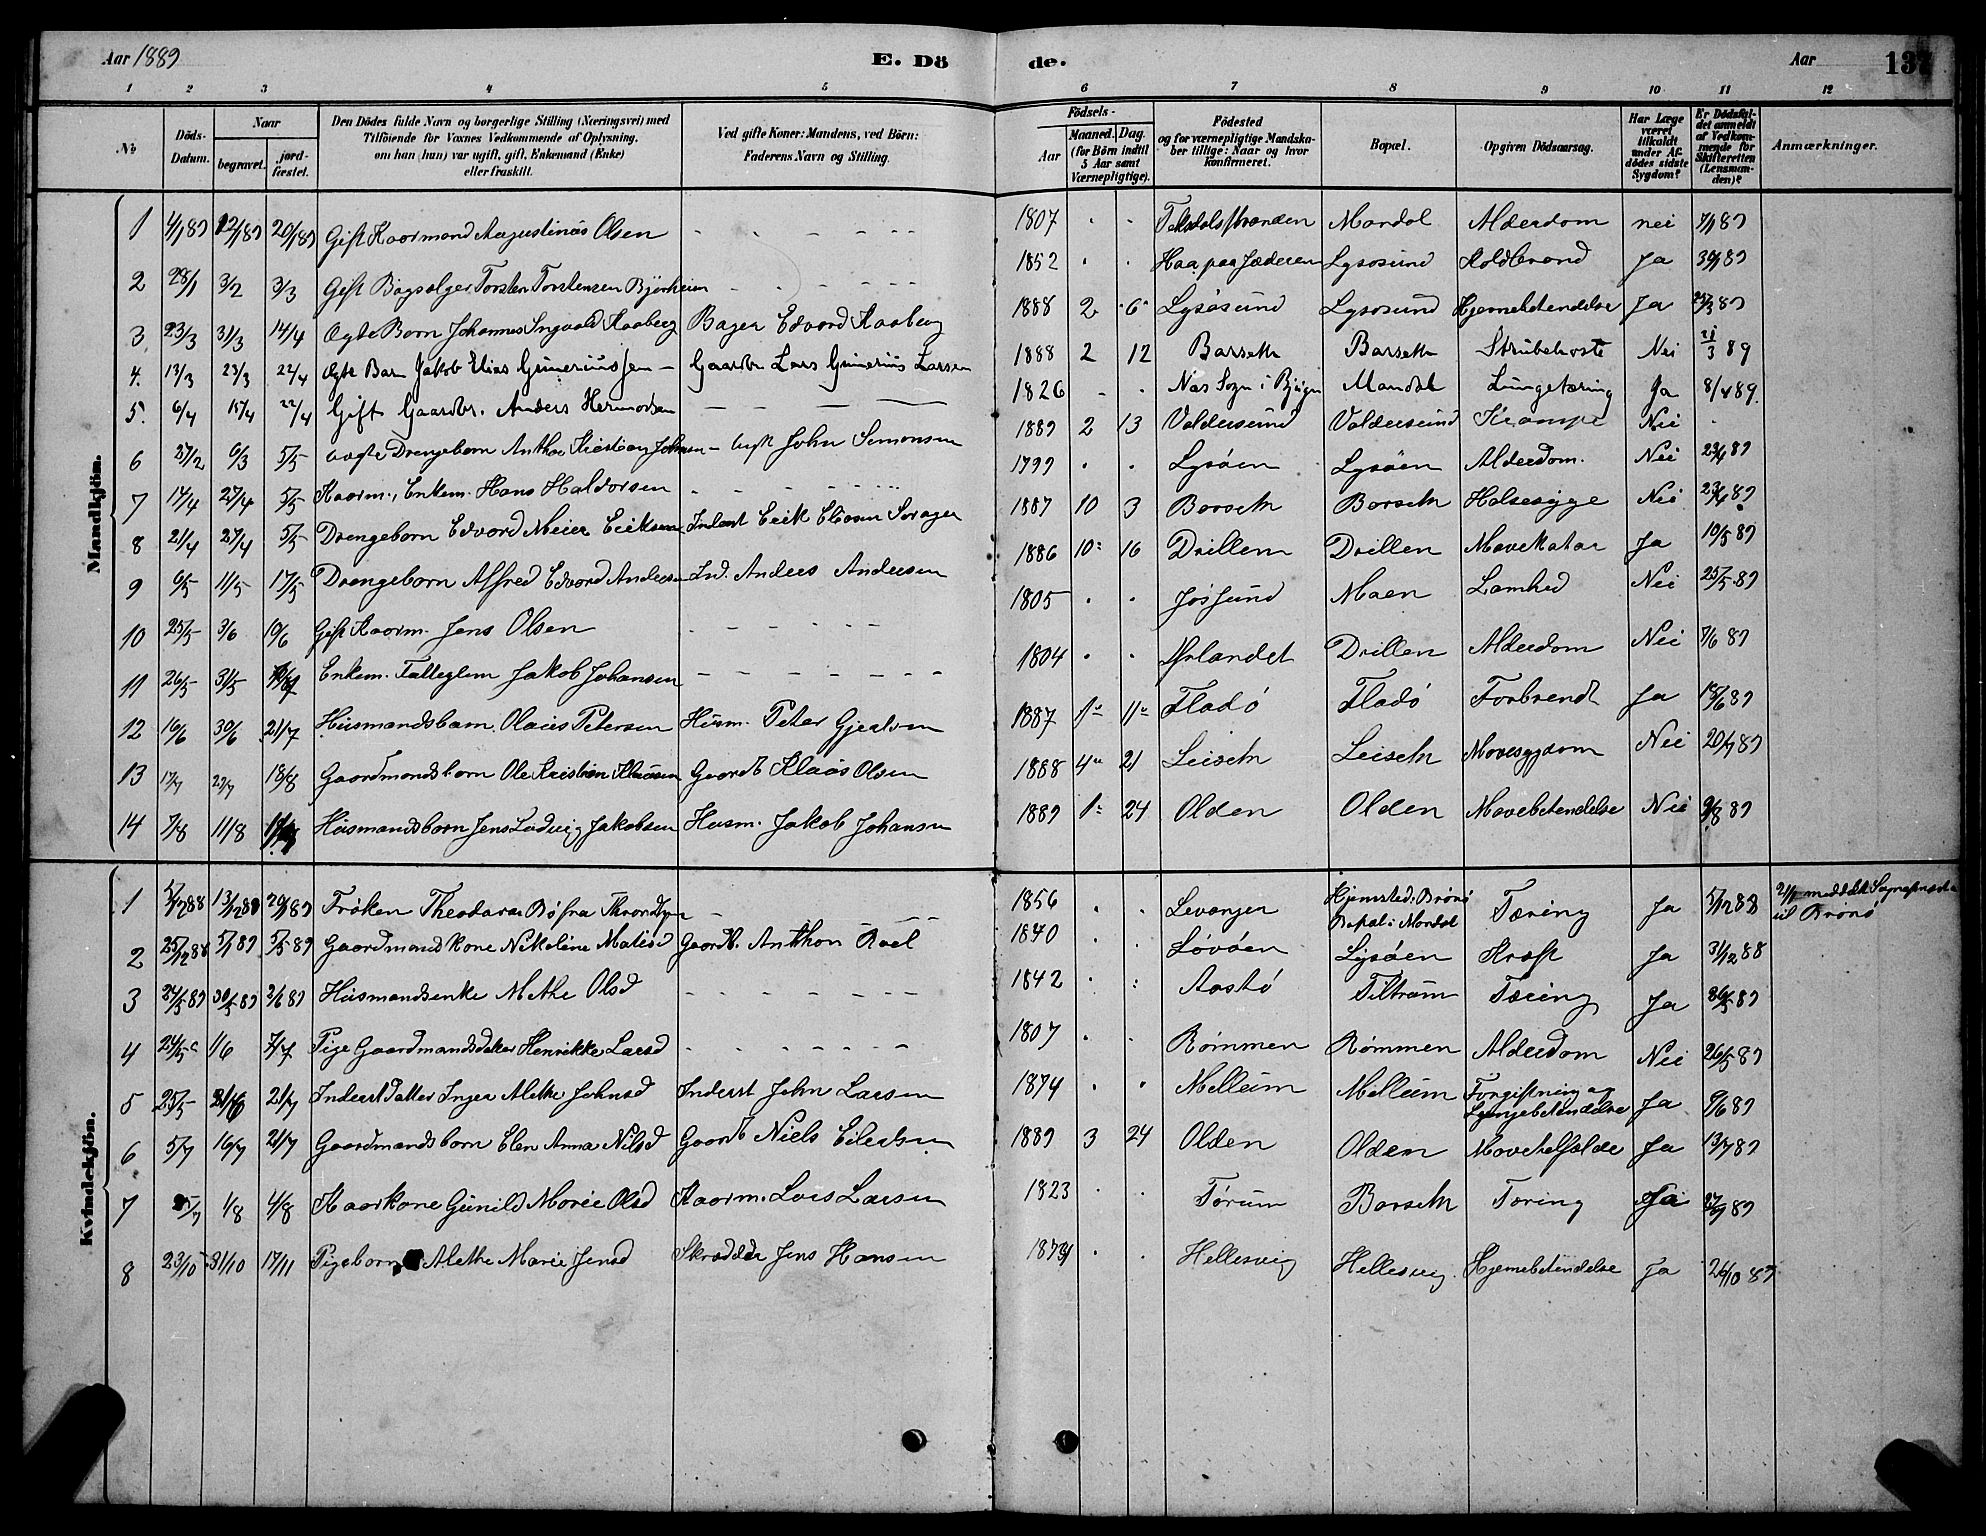 Aar 1889
E. Dö
de.
Aar
137
1 2 3 4 5 6 7 8 9 10 11 12
No
Döds-Datum.
Naar
begravet.
jord-fæstet.
Den Dödes fulde Navn og borgerlige Stilling (Næringsvei) med
Tilföiende for Voxnes Vedkommende af Oplysning,
om han (hun) var ugift, gift, Enkemand (Enke)
eller fraskilt.
Ved gifte Koner: Mandens, ved Börn:
Faderens Navn og Stilling.
Födsels-
Aar
Maaned. Dag.
(for Börn indtil
5 Aar samt
Værnepligtige).
Födested
og for værnepligtige Mandska-
ber tillige: Naar og hvor
konfirmeret.
Bopæl.
Opgiven Dödsaarsag.
Har Læge
været
tilkaldt
under Af-
dödes sidste
Sygdom?
Er Dödsfal-
det anmeldt
af Vedkom-
mende for
Skifteretten
(Lensman-
den)?
Anmærkninger.
Mandkjön.
1 4/1 89 12/1 89 20/1 89 Gift Kaarmand Augustinus Olsen - - - - - - 1807 . . Mandal Alderdom nei 7/1 89
2 28/1 3/2 3/3 Gift Bogsælger Torsten Torstensen Bjørheim - - - - - 1852 . . Haa paa Jæderen Lysøsund Koldbrand Ja 30/1 89
3 23/3 31/3 14/4 Ægte Barn Johannes Ingvald Kaaberg Bager Edvard Kaaberg 1888 2 6 Lysøsund Lysøsund Hjernebetendelse Ja 25/3 89
4. 13/3 23/3 22/4 Ægte Barn Jakob Elias Gruneriussen - Gaardbr Lars Grunerius Larsen 1888 2 12 Barseth Barseth Strubehoste Nei 21/3 89
5. 6/4 15/4 22/4 Gift Gaardbr. Anders Hermodsen - - - 1826 - . Næs Sogn i Bjugn Mandal Lungetæring Ja 8/4 89.
6 27/2 6/3 5/5 uægte Drengebarn Anthon Kristian Johnsen - Ugift John Simonsen 1889 2 13 Valdersund Valdersund Krampe Nei .
7 17/4 27/4 5/5 Kaarm., Enkem. Hans Haldorsen - - - - - 1799 . . Lysøen Lysøen Alderdom. Nei 23/4 89
8 21/4 27/4 5/5 Drengebarn Edvard Meier Eriksen Inderst Erik Eliasen 1887 10 3 Borseth Borseth Halsesyge Nei 23/4 89
9 6/5 11/5 17/5 Drengebarn Alfred Edvard Andersen Ind. Anders Andersen 1886 10 16 Drillen Drillen Mavekatar Ja 10/5 89
10 25/5 3/6 10/6 Gift Kaarm. Jens Olsen - - - - - 1805 . . Jøssund Moen Lamhed Nei 25/5 89
11 26/5 31/5 Enkem. Fattiglem Jakob Johansen - - - - - - - 1804 . . Ørlandet Drillen Alderdom Nei 7/6 89
12 16/6 30/6 21/7 Husmandsbarn Olaus Petersen Husm. Peter Gjertsen 1887 1 11 Fladø Fladø Forbrendt Ja 18/6 89
13 17/7 23/7 18/8 Gaardmandsbarn Ole Kristian Klausen Gaardb Klaus Olsen 1888 4 21 Leiseth Leiseth Mavesygdom Nei 20/7 89
14 7/8 11/8 Husmandsbarn Jens Ludvig Jakobsen Husm. Jakob Johansen 1889 1 24 Olden Olden Mavebetendelse Nei 9/8 89
Kvindekjön.
1 5/12 88 13/12 88 20/1 89 Frøken Theodora - 1856 . . Levanger Hjemsted: Brønø Bopæl: Mandal Tæring Ja 5/12 88 meddelt Sognepresten til Brønø
2 25/12 88 5/1 89 5/5 89 Gaardmandskone Nikoline Matisd Gaardb. Anthon Roel 1840 . . Løvøen Lysøen Kræft Ja 31/12 88
3 24/5 89 30/5 89 2/6 89 Husmandsenke Methe Olsd - - - - - - - 1842 . . Aastø Tiltrum Tæring Ja 26/5 89
4 24/5 1/6 7/7 Pige Gaardmandsdatter Henrikke Larsd - - - - - - - 1807 . . Rømmen Rømmen Alderdom Nei 26/5 89
5 25/5 21/7 Inderst Datter Inger Alethe Johnsd Inderst John Larsen 1874 . . Mellum Mellum Forgiftning og Lungebetendelse Ja 9/6 89
6 5/7 16/7 21/7 Gaardmandsbarn Elen Anna Nilsd Gaardb Niels Eilertsen 1889 3 24 Olden Olden Mavetilfælde Ja 13/7 89
7 25/7 1/8 4/8 Kaarkone Gunild Marie Olsd Kaarm. Lars Larsen 1823 . . Tørum Borseth Tæring Ja 27/7 89
8 23/10 31/10 17/11 Pigebarn Alethe Marie Jensd Skrædder Jens Hansen . . Hellesvig Hellesvig. Hjernebetendelse Ja 26/10 89